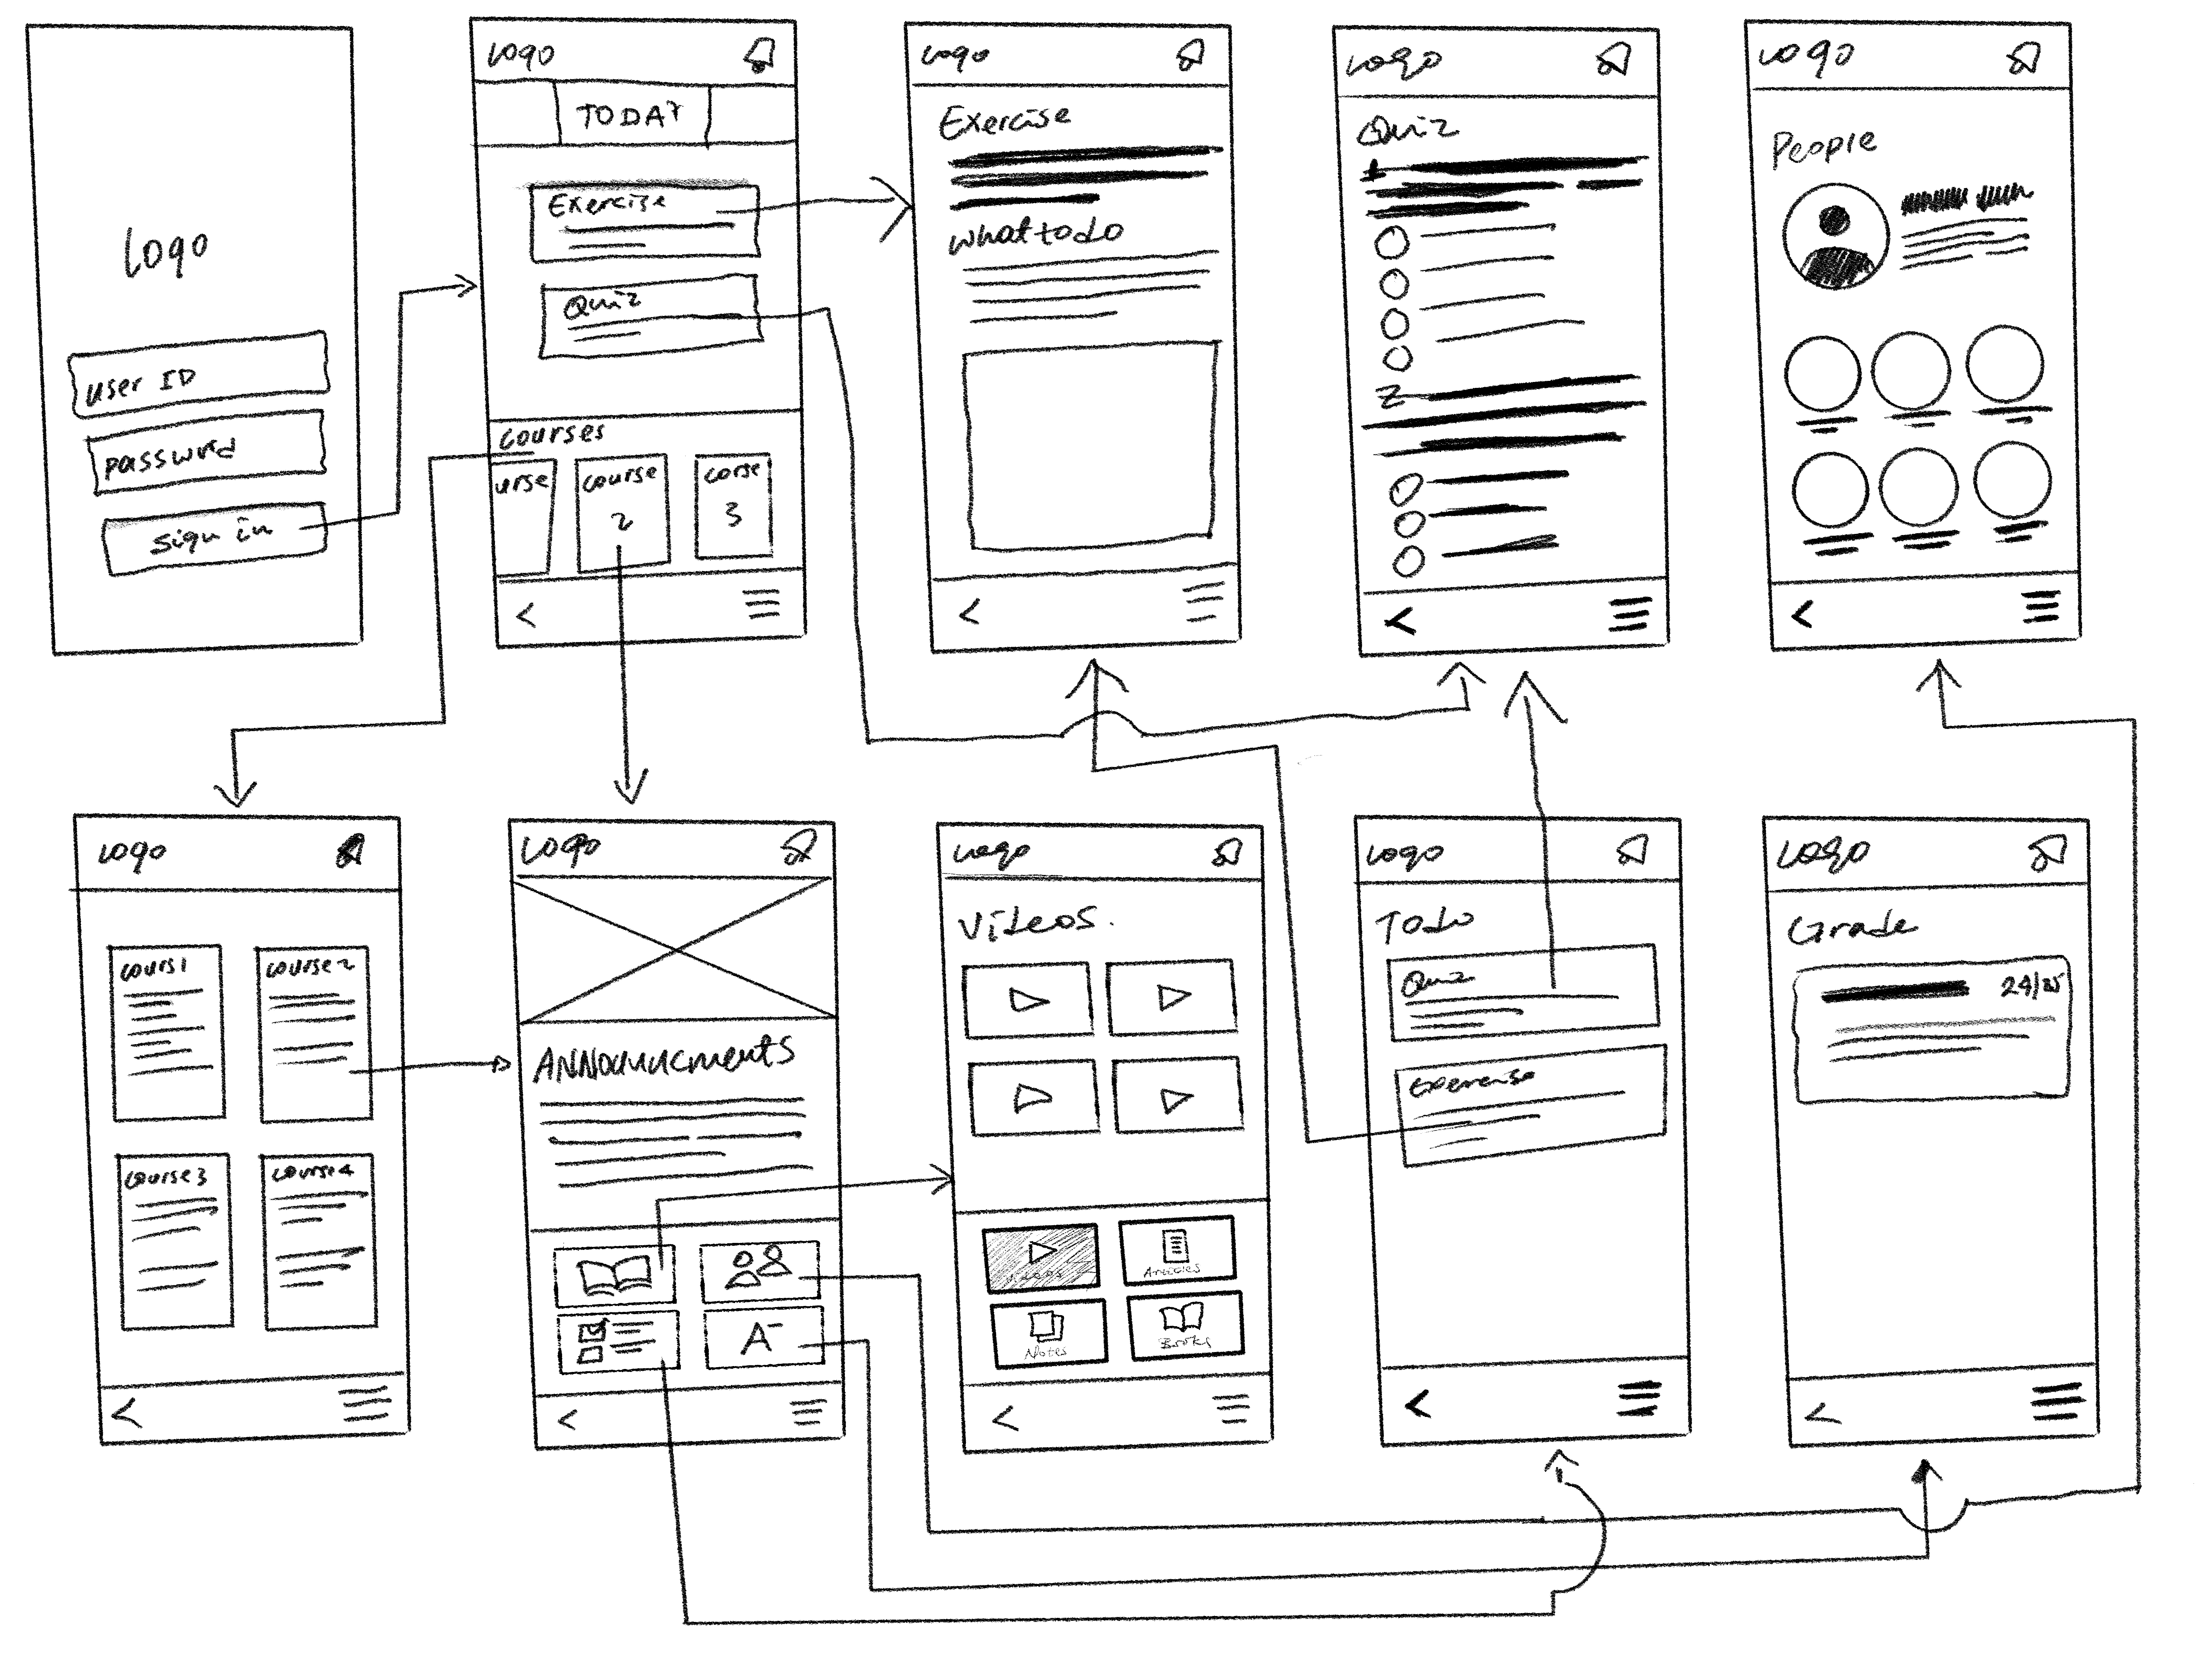 Logo
user ID
password
sign in
Logo
TODAY
Exercise
Quiz
courses
urse
course
2
corse
3
Logo
Exercise
what to do
Logo
Quiz
1
2
Logo
People
Logo
cours1
course2
course3
course4
Logo
ANNOUNCMENTS
A-
Logo
Videos.
Videos
Articles
Notes
Books
Logo
Todo
Quiz
Exercise
Logo
Grade